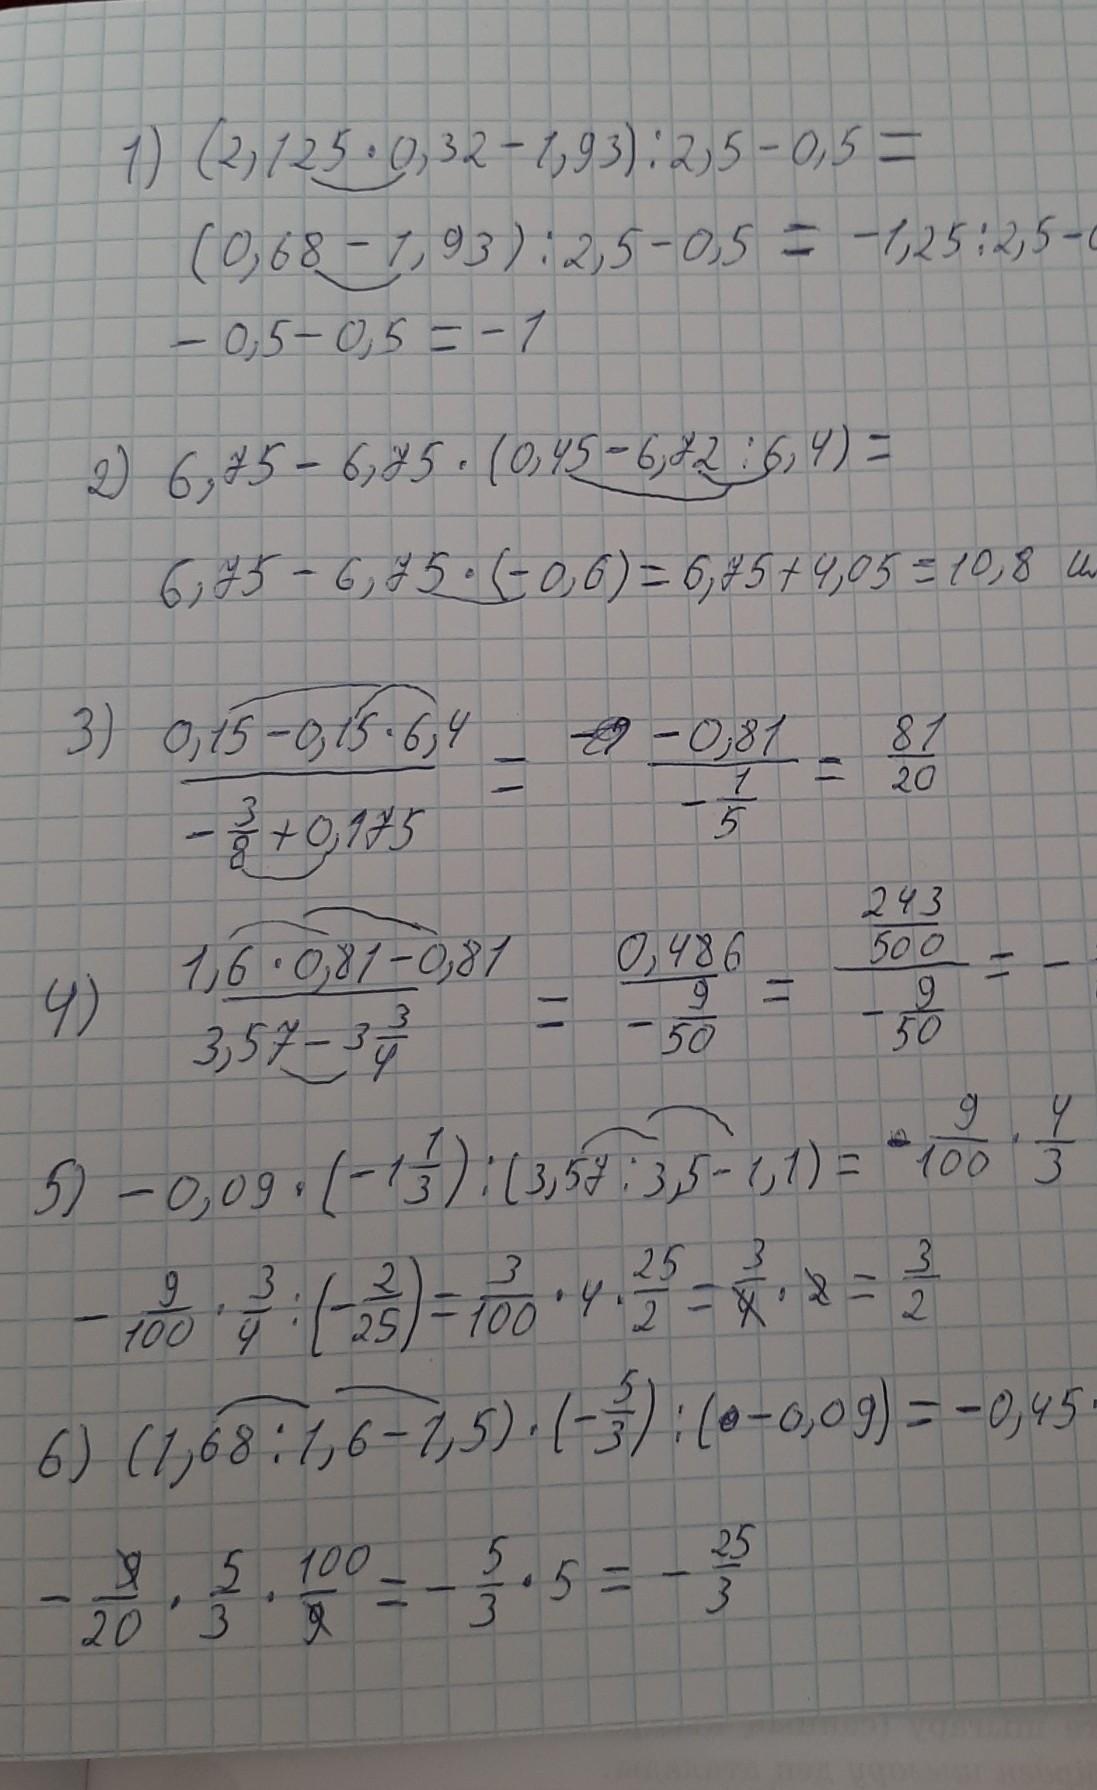 1) (2,125·0,32-1,93):2,5-0,5=
(0,68-1,93):2,5-0,5=-1,25:2,5-
-0,5-0,5=-1
2) 6,75-6,75·(0,45-6,72:6,4)=
6,75-6,75·(-0,6)=6,75+4,05=10,8
3) (0,15-0,15·6,4)/(-3/8+0,175) = (-0,81)/(-1/5) = 81/20
4) (1,6·0,81-0,81)/(3,57-3 3/4) = 0,486/(-9/50) = (243/500)/(-9/50) = -
5) -0,09·(-1 1/3):(3,57:3,5-1,1)= 9/100 · 4/3
-9/100 · 3/4 : (-2/25) = 3/100 · 4 · 25/2 = 3/4 · 2 = 3/2
6) (1,68:1,6-1,5)·(-5/3):(-0,09)=-0,45·
-9/20 · 5/3 · 100/9 = -5/3 · 5 = -25/3